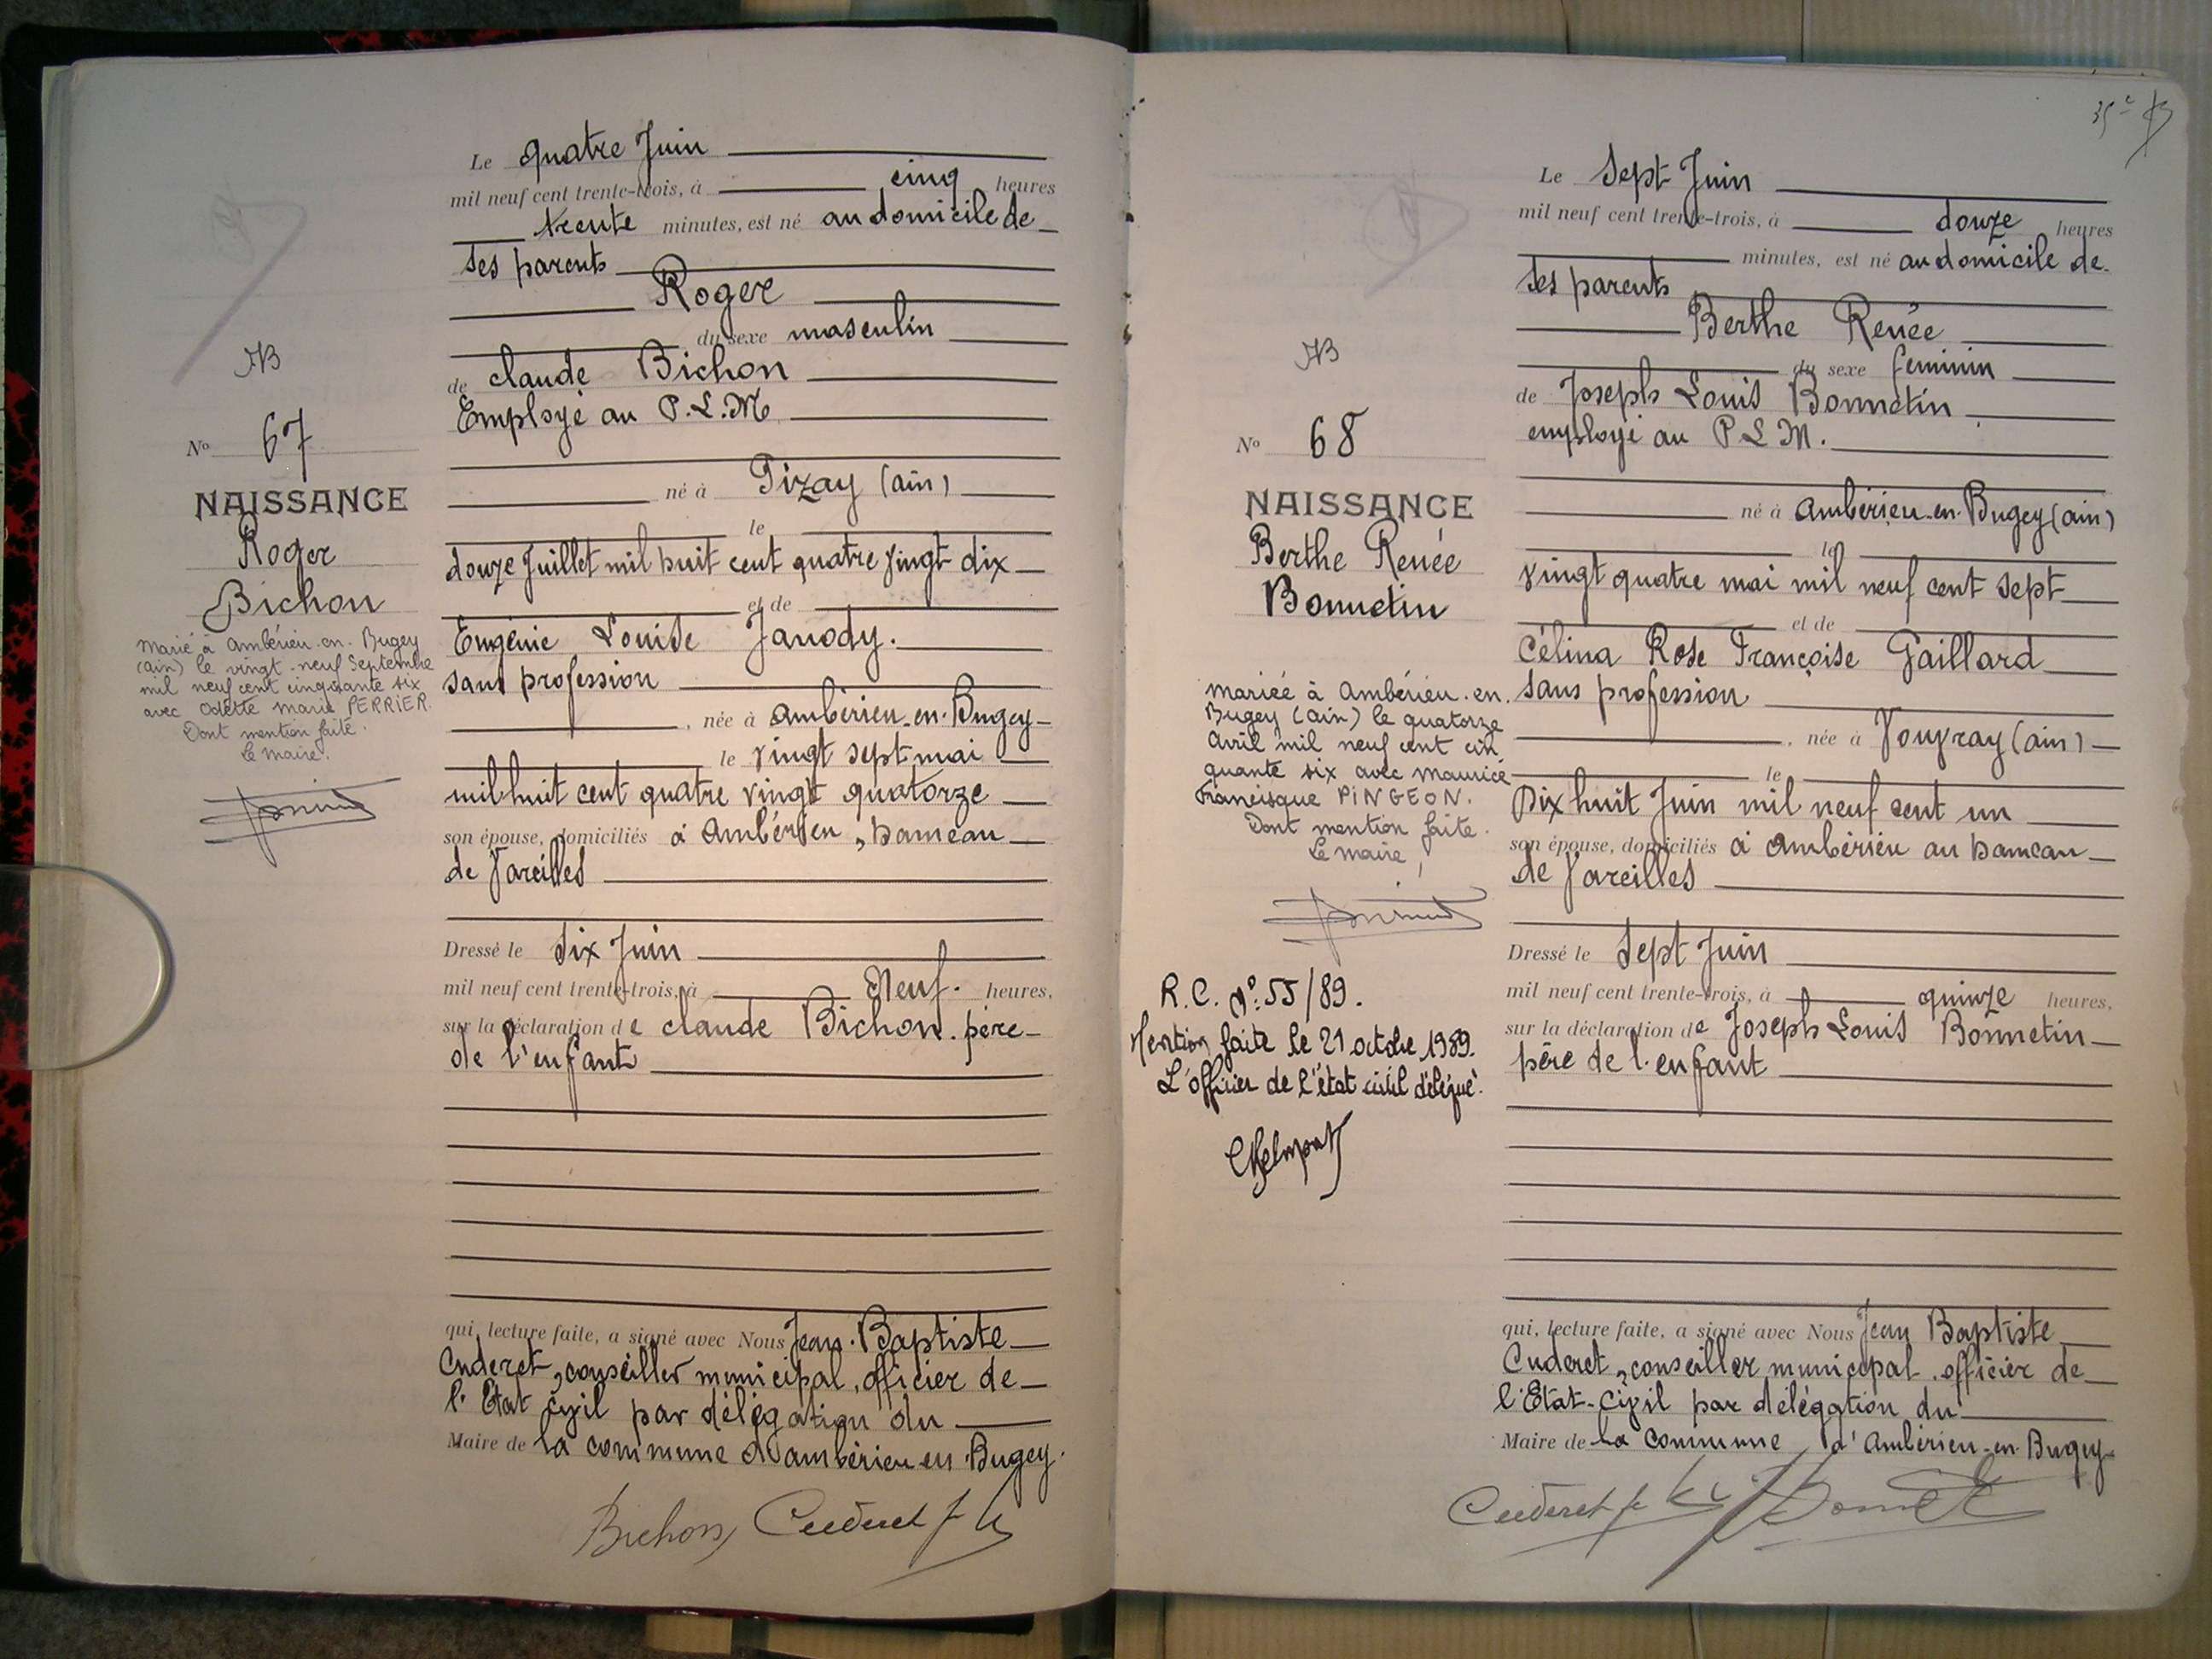 Le quatre Juin
mil neuf cent trente-trois, à cinq heures
trente minutes, est né au domicile de
ses parents
Roger
du sexe masculin
de Claude Bichon
Employé au P.L.M
né à Pizay (ain)
le
douze Juillet mil huit cent quatre vingt dix
et de
Eugénie Louise Janody.
sans profession
, née à Ambérieu-en-Bugey
le vingt sept mai
mil huit cent quatre vingt quatorze
son épouse, domiciliés à Ambérieu, hameau
de Vareilles
Dressé le six Juin
mil neuf cent trente-trois, à Neuf. heures,
sur la déclaration de Claude Bichon. père
de l'enfant
qui, lecture faite, a signé avec Nous Jean-Baptiste
Cuderet, conseiller municipal, officier de
l'Etat civil par délégation du
Maire de la commune d'ambérieu en Bugey.
Bichon Cuderet
JB
No 67
NAISSANCE
Roger
Bichon
Marié à Ambérieu-en-Bugey
(ain) le vingt-neuf Septembre
mil neuf cent cinquante six
avec Odette Marie PERRIER.
Dont mention faite.
Le Maire.
35e
Le Sept Juin
mil neuf cent trente-trois, à douze heures
minutes, est né au domicile de
ses parents
Berthe Renée
du sexe féminin
de Joseph Louis Bonnetin
employé au P L M.
né à Ambérieu-en-Bugey (ain)
le
vingt quatre mai mil neuf cent sept
et de
Célina Rose Françoise Gaillard
sans profession
, née à Jouvray (ain)
le
Dix huit Juin mil neuf cent un
son épouse, domiciliés à Ambérieu au hameau
de Vareilles
Dressé le Sept Juin
mil neuf cent trente-trois, à quinze heures,
sur la déclaration de Joseph Louis Bonnetin
père de l'enfant
qui, lecture faite, a signé avec Nous Jean Baptiste
Cuderet, conseiller municipal, officier de
l'Etat-Civil par délégation du
Maire de la Commune d'Ambérieu-en-Bugey
Cuderet
JB
No 68
NAISSANCE
Berthe Renée
Bonnetin
Mariée à Ambérieu-en.
Bugey (ain) le quatorze
avril mil neuf cent cin
quante six avec Maurice
Francisque PINGEON.
Dont mention faite.
Le Maire,
R.C. N°: 55/89.
Mention faite le 21 octobre 1989.
L'officier de l'état civil délégué.